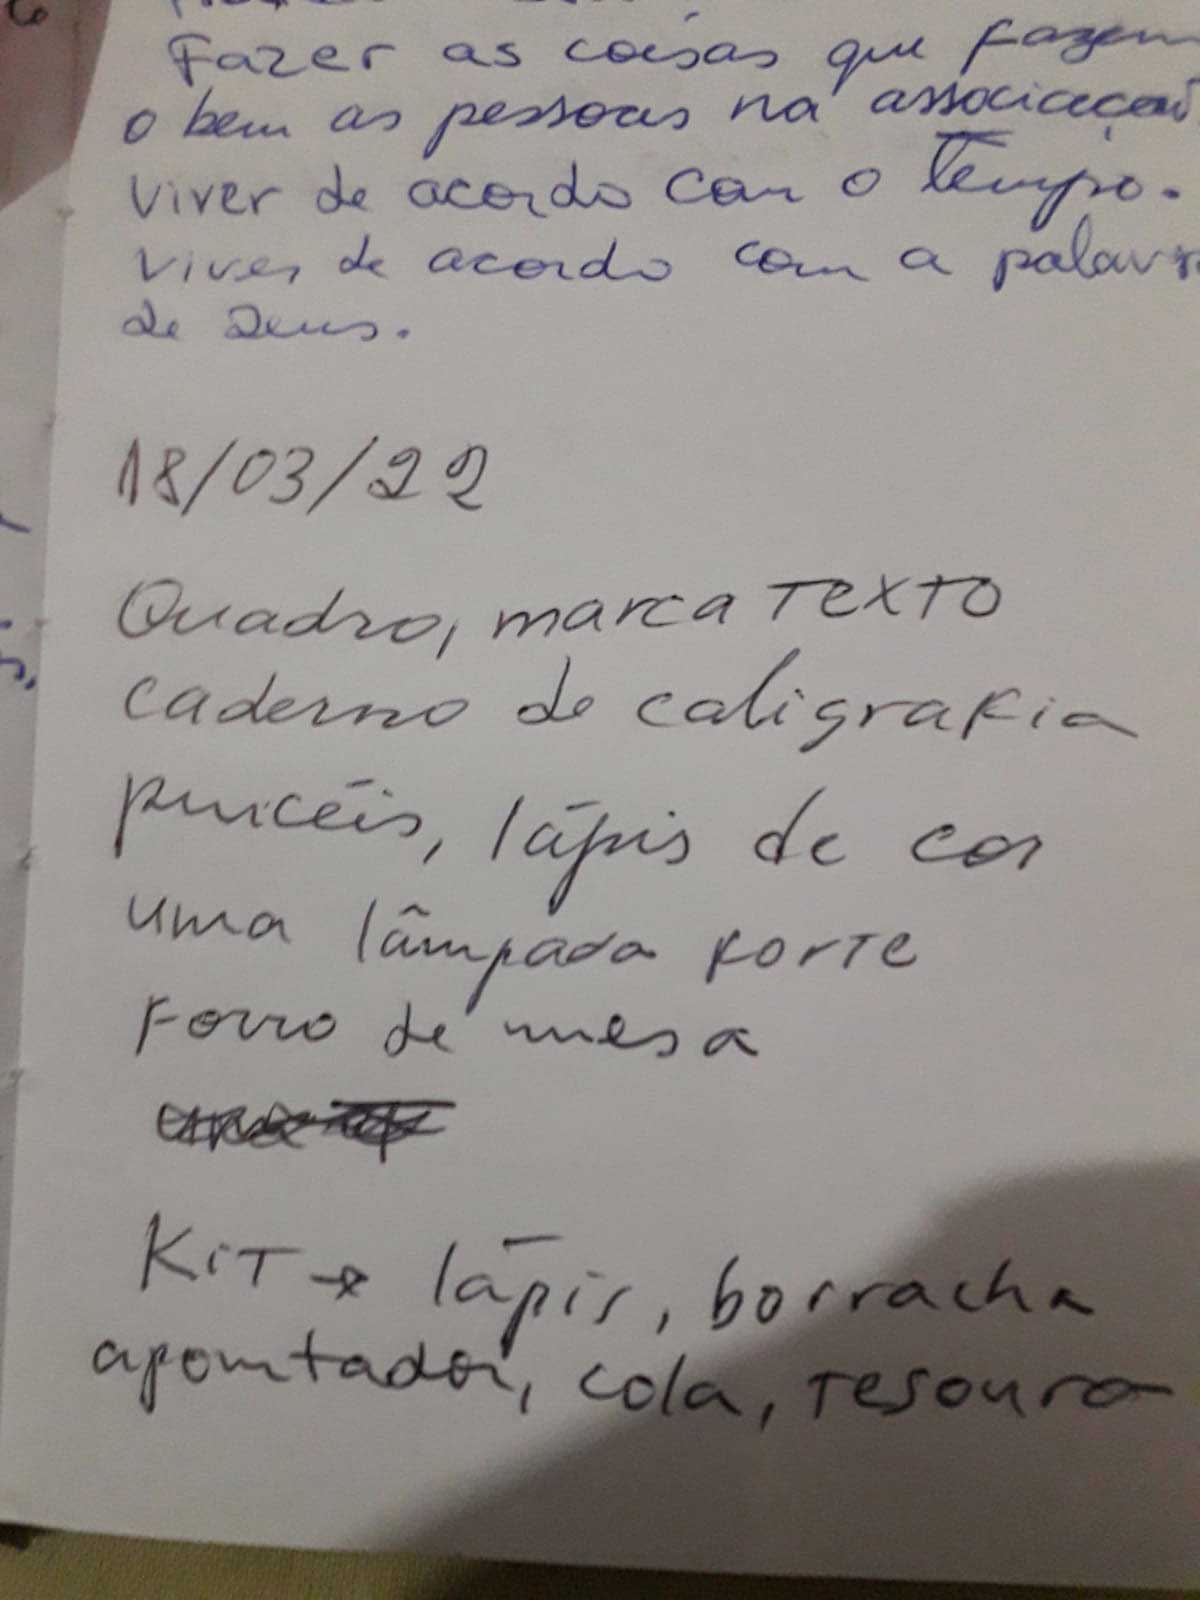 Fazer as coisas que fazem
o bem as pessoas na associação
viver de acordo com o Tempo.
viver de acordo com a palavr
de Deus.
18/03/22
Quadro, marca TEXTO
caderno de caligrafia
pincéis, lápis de cor
uma lâmpada forte
Forro de mesa
KiT → lápis, borracha
apontador, cola, Tesoura